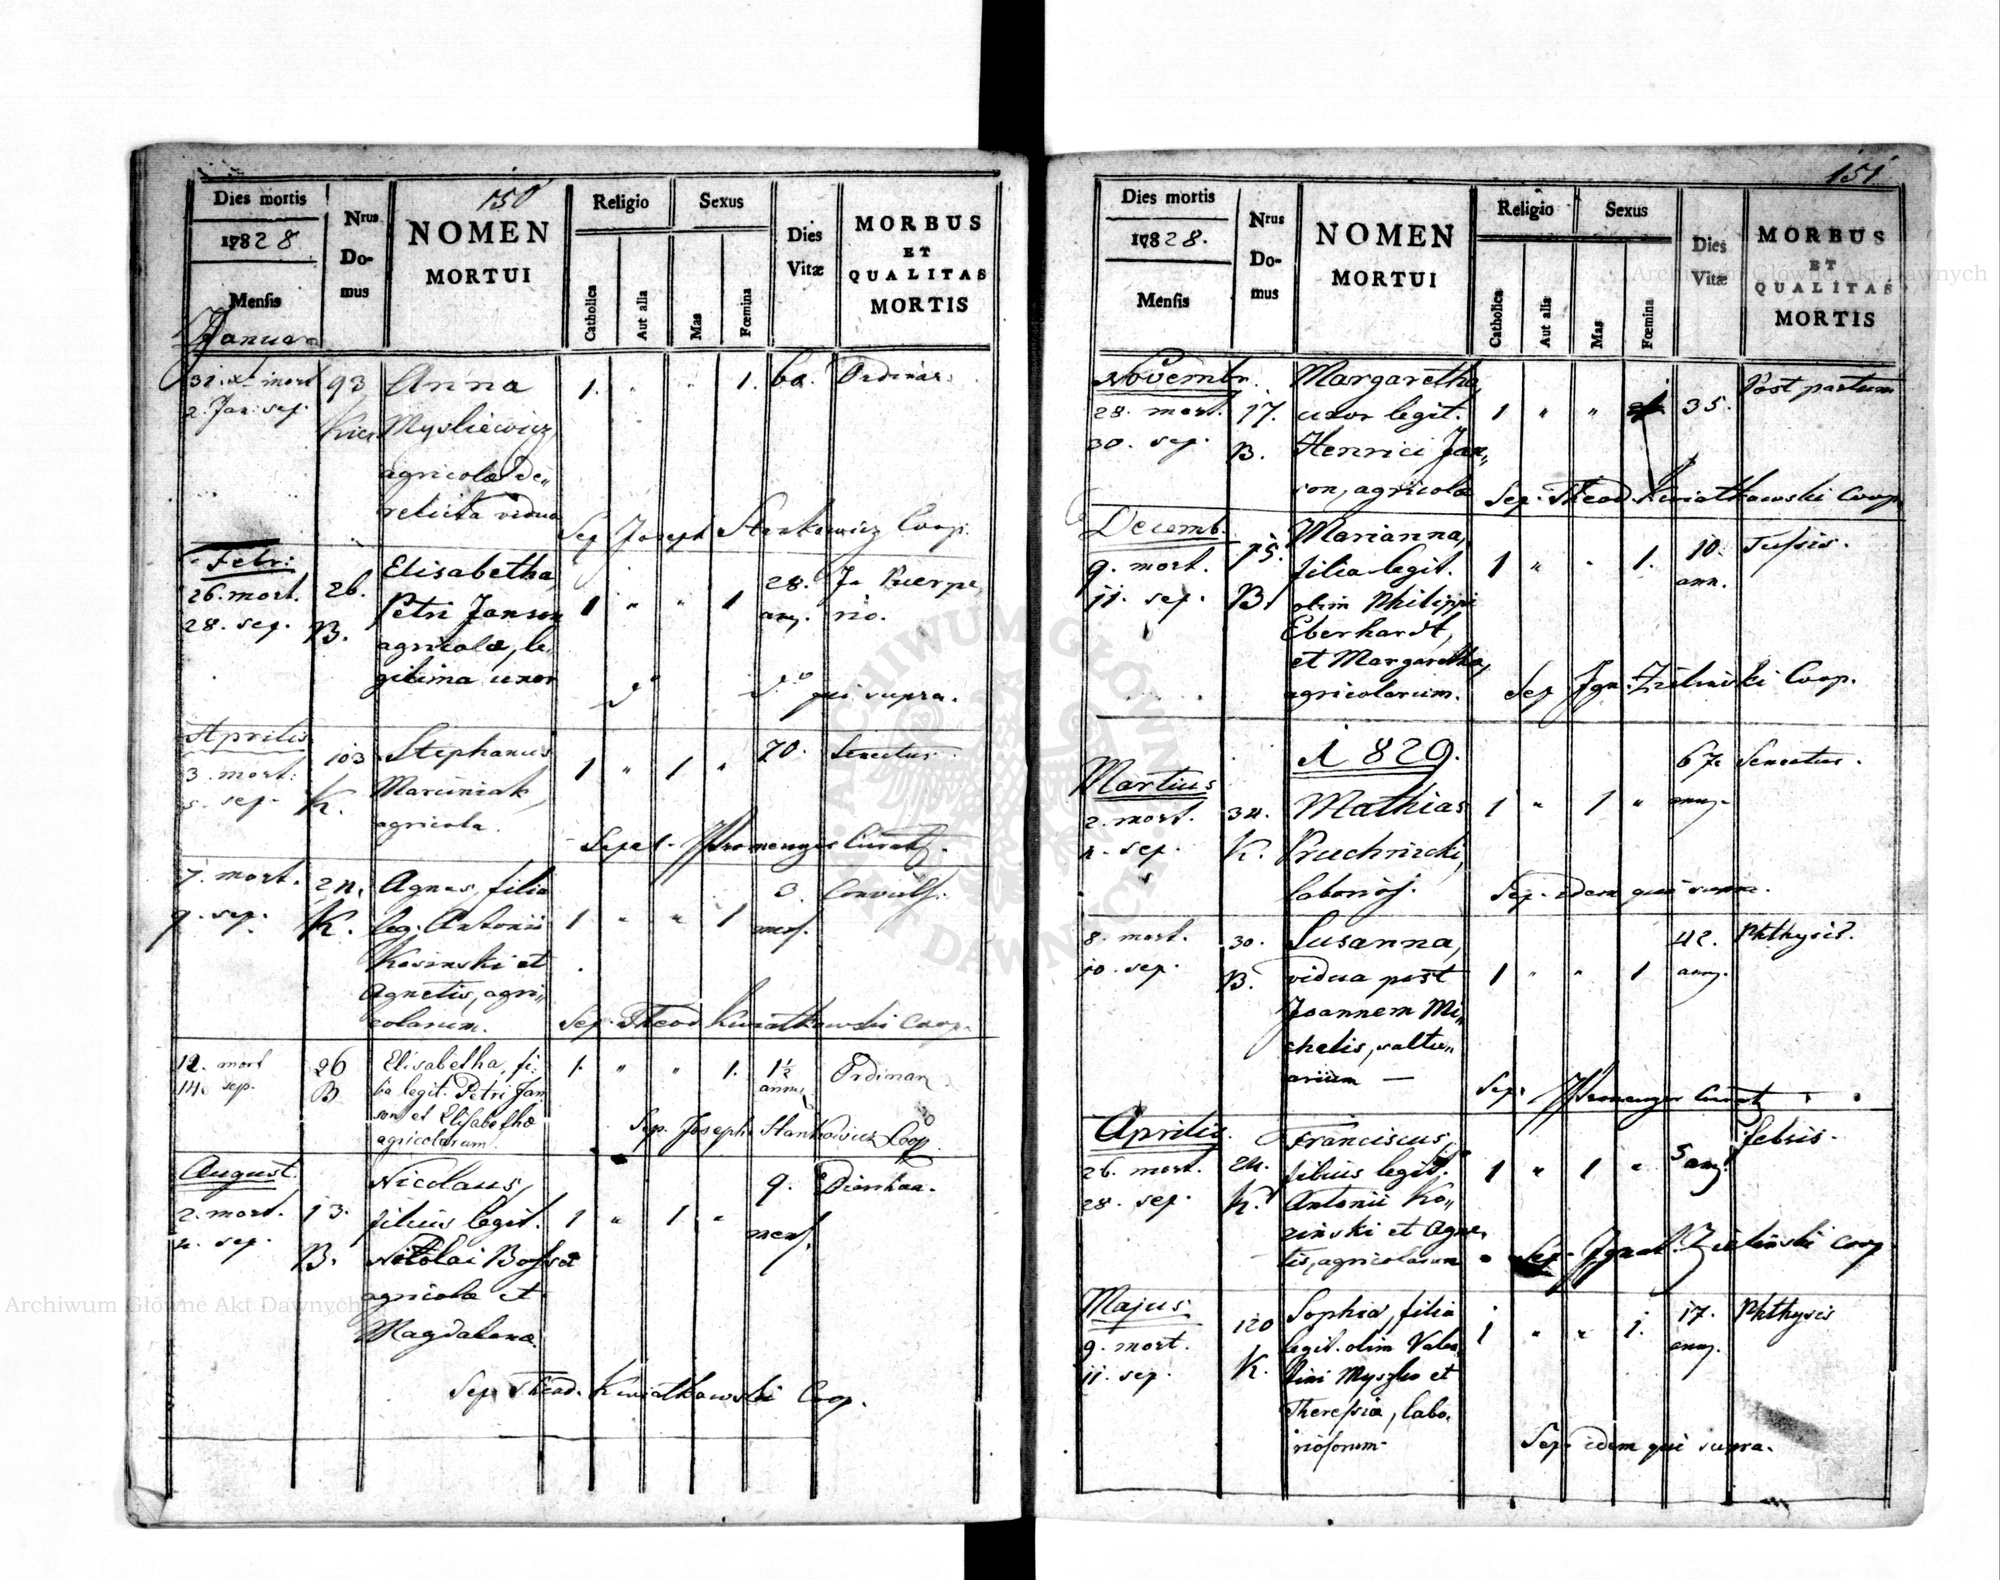 150
Dies mortis
1828
Mensis
Nrus
Do-
mus
NOMEN
MORTUI
Religio
Catholica
Aut alia
Sexus
Mas
Fœmina
Dies
Vitæ
MORBUS
ET
QUALITAS
MORTIS
Januar
31. mort
2. Jan: sep.
93
Anna
Mysliewicz
agricolæ de„
relicta vidua
1.
"
"
1.
60.
Ordinar.
Sep Joseph Stankowicz Coop.
Febr:
26. mort.
28. sep.
26.
B.
Elisabetha,
Petri Janson
agricolæ, le„
gitima uxor
1
"
"
1
28.
Jn Puerpe„
rio.
qui supra.
Aprilis
3. mort:
5. sep.
103
K.
Stephanus
Marciniak,
agricola.
1
"
1
"
70.
Senectus.
Sepel. Curat.
7. mort.
9. sep.
24.
K.
Agnes, filia
leg. Antonii
Kosinski et
Agnetis, agri„
colarum.
1
"
"
1
3.
mens.
Convuls.
Sep. Theod Kwiatkowski Coop.
12. mort
14. sep.
26
B
Elisabetha, fi„
lia legit. Petri Jan
son et Elisabethæ
agricolarum.
1.
"
"
1.
1½
anni
Ordinar.
Sep. Joseph Stankowicz Coop
August.
2. mort.
4. sep.
13.
B.
Nicolaus,
filius legit.
Nicolai
agricolæ et
Magdalenæ
1
"
1
"
9.
mens.
Diarrhæa.
Sep. Theod. Kwiatkowski Coop.
151
Dies mortis
1828.
Mensis
Nrus
Do-
mus
NOMEN
MORTUI
Religio
Catholica
Aut alia
Sexus
Mas
Fœmina
Dies
Vitæ
MORBUS
ET
QUALITAS
MORTIS
Novembr.
28. mort.
30. sep.
17.
B.
Margaretha,
uxor legit.
Henrici Jan„
son, agricolæ
1
"
"
35.
Post partum
Sep. Theod. Kwiatkowski Coop.
Decemb.
9. mort.
11. sep.
15.
B.
Marianna,
filia legit.
olim Philippi
Eberhardt,
et Margaretha,
agricolarum.
1
"
"
1.
10.
ann.
Tussis.
Sep Ign. Zielinski Coop.
1829.
Martius
2. mort.
4. sep.
34.
K.
Mathias
Pruchnicki,
laborios.
1
"
1
"
67.
ann.
Senectus.
Sep. idem qui supra.
8. mort.
10. sep.
30.
B.
Susanna,
vidua post
Joannem Mi„
chelis, saltu„
arium —
1
"
"
1
42.
ann.
Phthysis.
Sep. Curat
Aprilis.
26. mort.
28. sep.
24.
K.
Franciscus,
filius legit.
Antonii Ko„
zinski et Agne„
tis, agricolarum
1
"
1
"
5
ann.
febris.
Sep. Ignat. Zielinski Coop
Majus
9. mort.
11. sep.
120
K.
Sophia, filia
legit. olim Valen„
tini Myszko et
Theressiæ, labo„
riosorum.
1
"
"
1.
17.
ann.
Phthysis
Sep. idem qui supra.
Archiwum Główne Akt Dawnych
Archiwum Główne Akt Dawnych
ARCHIWUM GŁÓWNE AKT DAWNYCH